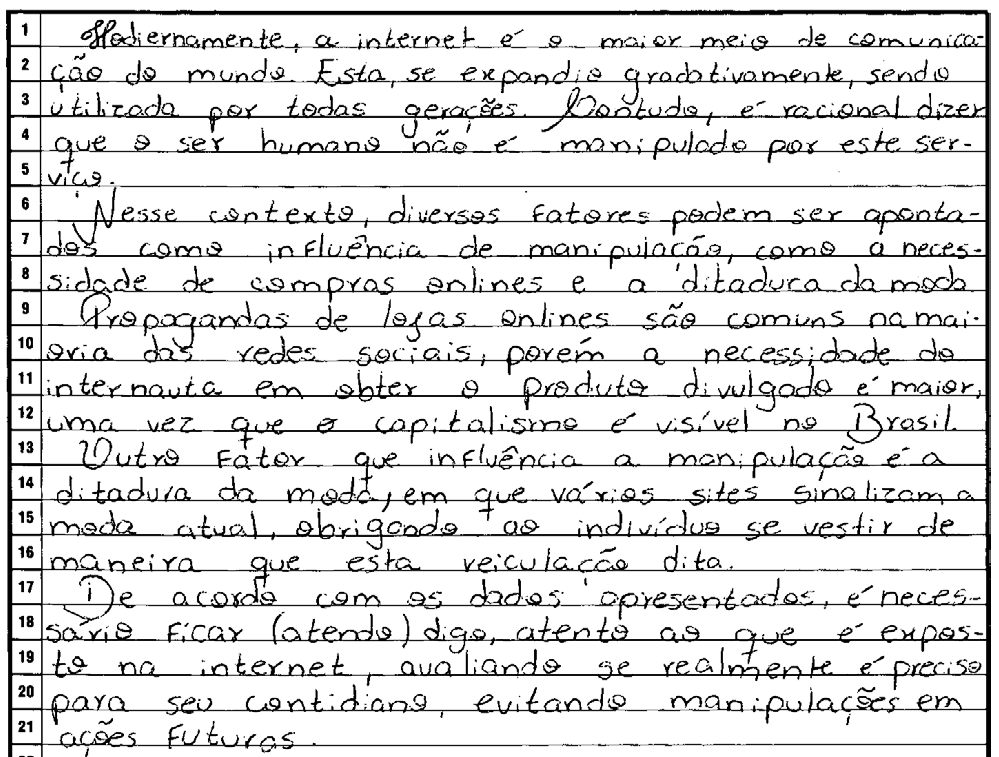 1 Hodiernamente, a internet é o maior meio de comunica-
2 ção do mundo. Esta, se expandio gradativamente, sendo
3 utilizada por todas gerações. Contudo, é racional dizer
4 que o ser humano não é manipulado por este ser-
5 viço.
6 Nesse contexto, diversos fatores podem ser aponta-
7 dos como influência de manipulação, como a neces-
8 sidade de compras onlines e a ditadura da moda
9 Propagandas de lojas onlines são comuns na mai-
10 oria das redes sociais, porém a necessidade do
11 internauta em obter o produto divulgado é maior,
12 uma vez que o capitalismo é visível no Brasil.
13 Outro fator que influência a manipulação é a
14 ditadura da moda, em que vários sites sinalizam a
15 moda atual, obrigando ao indivíduo se vestir de
16 maneira que esta veiculação dita.
17 De acordo com os dados apresentados, é neces-
18 sário ficar (atendo) digo, atento ao que é expos-
19 to na internet, avaliando se realmente é preciso
20 para seu contidiano, evitando manipulações em
21 ações futuras.